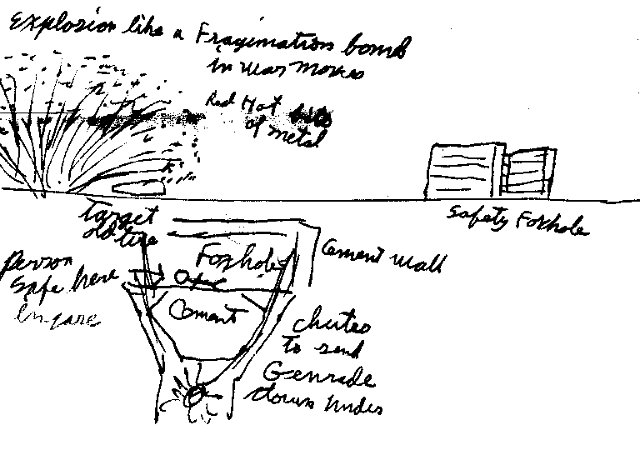 Explosion like a Fragmation bomb
in war movies
Red Hot bits
of metal
target
old tire
Safety Foxhole
Foxhole
Cement wall
person
safe here
Cement
chutes
to send
Genrade
down under